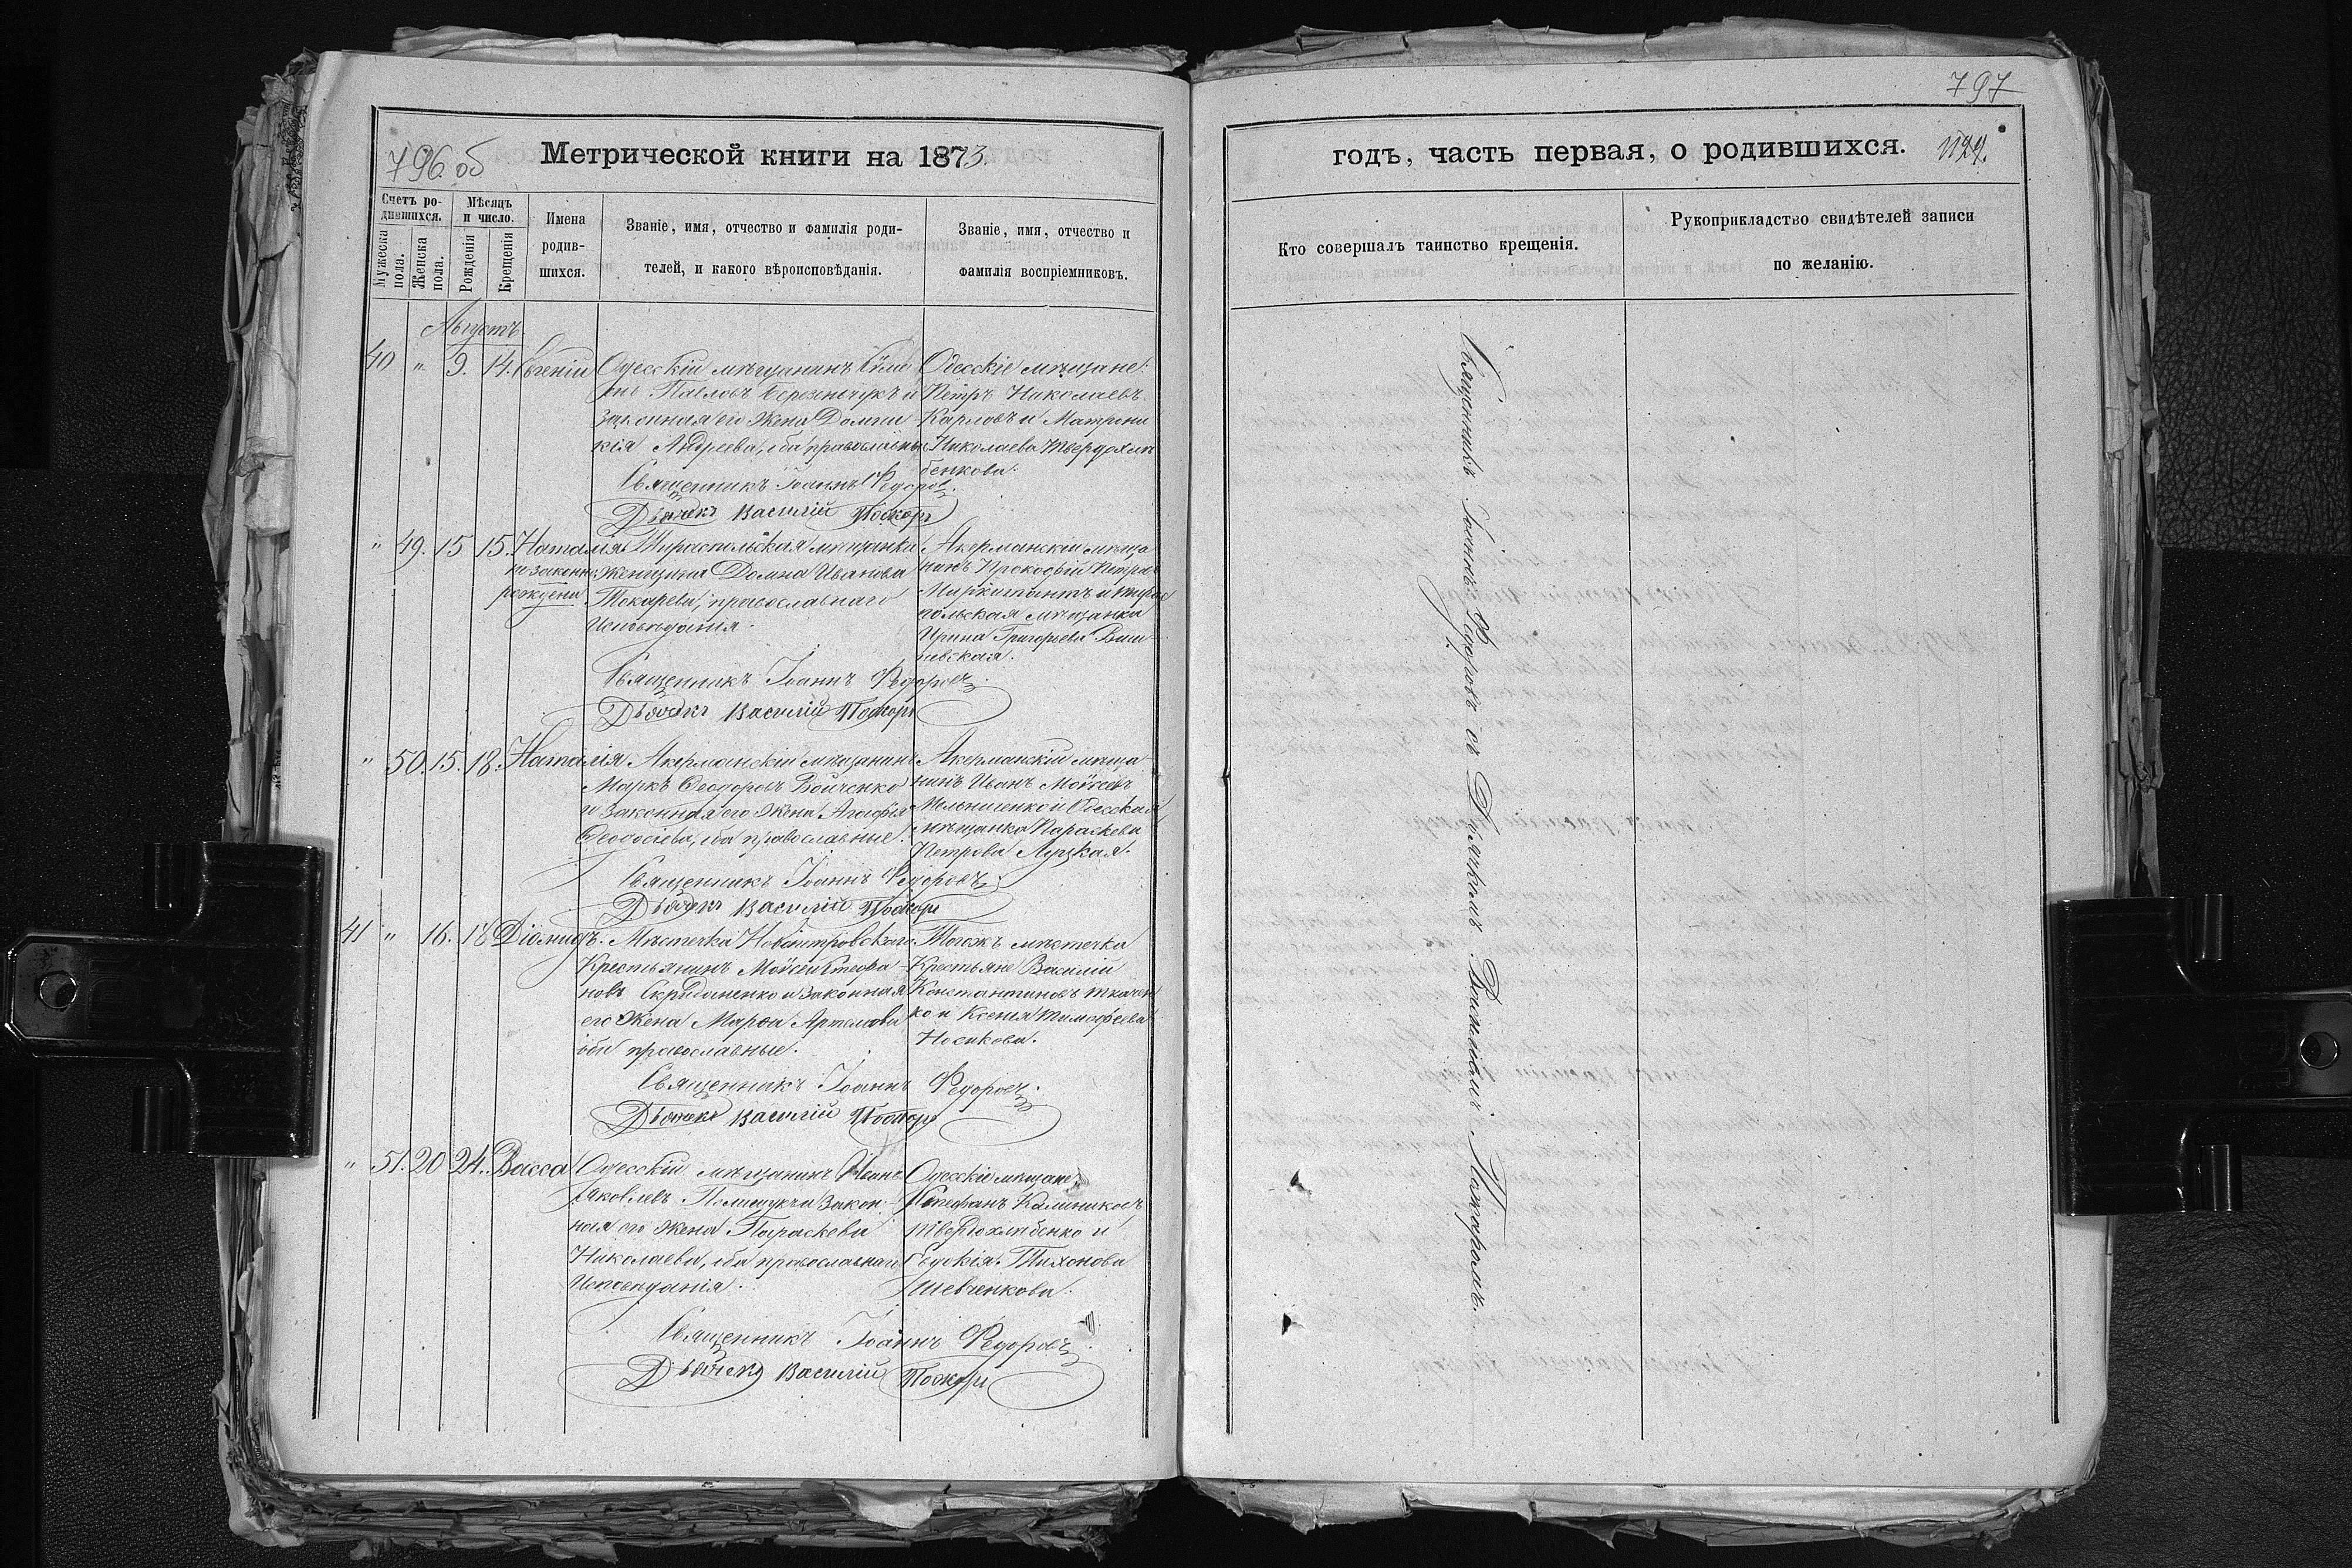 796 об
Метрической книги на 1873
Счетъ ро-
дившихся.
Мужеска
пола.
Женска
пола.
Мѣсяцъ
и число.
Рожденія
Крещенія
Имена
родив-
шихся.
Званіе, имя, отчество и фамилія роди-
телей, и какого вѣроисповѣданія.
Званіе, имя, отчество и
фамилія воспріемниковъ.
Августъ
40 " 9. 14. Евгеній
Одесскій мѣщанинъ
Павловъ и
законная его жена Домни
кія Андреева, оба православны
Одесскіе мѣщане:
Петръ Николаевъ
Карповъ и Матрона
Николаева Твердохлѣ
бенкова.
Священникъ Іоаннъ Федоровъ
Дьячекъ Василій
" 49. 15 15. Наталія
незаконно
рождена
Тираспольская мѣщанка
женщина Домна Иванова
Токарева, православнаго
Исповѣданія.
Акерманскій мѣща
нинъ Прокофій Петровъ
и Тирас
польская мѣщанка
Ирина Григорьева Виш
невская.
Священникъ Іоаннъ Федоровъ
Дьячекъ Василій
" 50. 15. 18. Наталія
Акерманскій мѣщанинъ
Маркъ Феодоровъ Войченко
и законная его жена Агафія
Феодосіева, оба православные.
Акерманскій мѣща
нинъ Иванъ Мойсеевъ
Мельниченко и Одесская
мѣщанка Параскева
Петрова Луцкая.
Священникъ Іоаннъ Федоровъ
Дьячекъ Василій
41 " 16. 18 Діомидъ.
Мѣстечка Новопетровскаго
Крестьянинъ Мойсей Стефа
новъ и законная
его жена Марфа Артемова
оба православные.
Тогожъ мѣстечка
Крестьяне Василій
Константиновъ Ткачен
ко и Ксенія Тимофеева
Носикова.
Священникъ Іоаннъ Федоровъ
Дьячекъ Василій
" 51. 20 24. Васса
Одесскій мѣщанинъ Иванъ
Яковлевъ Полищукъ и Закон
ная его жена Параскева
Николаева, оба православнаго
Исповѣданія.
Одесскіе мѣщане:
Стефанъ Калиниковъ
Твердохлѣбенко и
Евдокія Тихонова
Шевченкова.
Священникъ Іоаннъ Федоровъ
Дьячекъ Василій
797
годъ, часть первая, о родившихся. 1129.
Кто совершалъ таинство крещенія.
Рукоприкладство свидѣтелей записи
по желанію.
Священникъ Іоаннъ Федоровъ съ Дьячкомъ Василіемъ